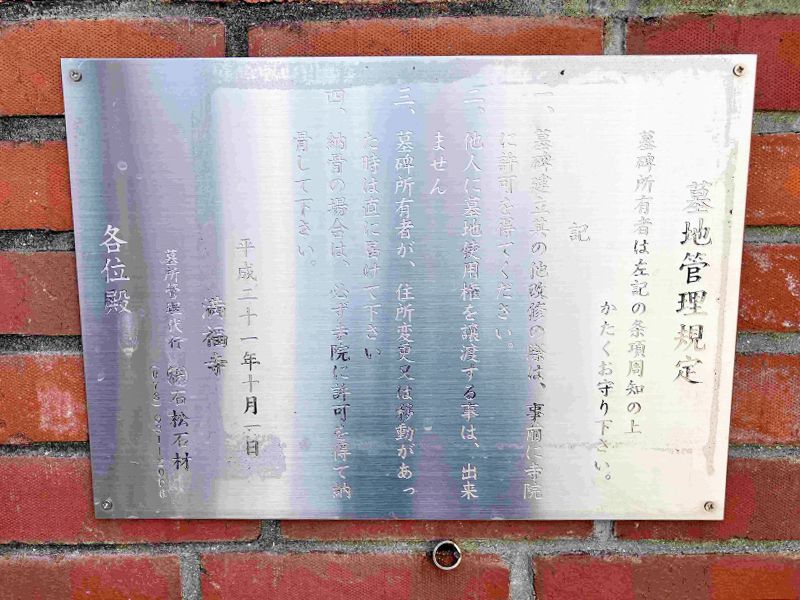 墓地管理規定
墓碑所有者は左記の条項周知の上
かたくお守り下さい。
記
一、墓碑建立其の他改修の際は、事前に寺院
に許可を得てください。
二、他人に墓地使用権を譲渡する事は、出来
ません
三、墓碑所有者が、住所変更又は移動があっ
た時は直に届けて下さい
四、納骨の場合は、必ず寺院に許可を得て納
骨して下さい。
平成二十一年十月 日
満福寺
墓所管理代行 石松石材
各位殿